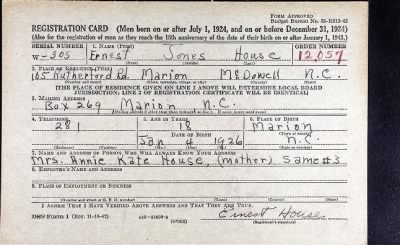 FORM APPROVED
REGISTRATION CARD (Men born on or after July 1, 1924, and on or before December 31, 1924)
(Also for the registration of men as they reach the 18th anniversary of the date of their birth on or after January 1, 1943.)
SERIAL NUMBER 1. NAME (Print) ORDER NUMBER
W-305 Ernest Jones House 12,057
2. PLACE OF RESIDENCE (Print)
105 Rutherford Rd. Marion McDowell N.C.
[THE PLACE OF RESIDENCE GIVEN ON LINE 2 ABOVE WILL DETERMINE LOCAL BOARD
JURISDICTION; LINE 2 OF REGISTRATION CERTIFICATE WILL BE IDENTICAL]
3. MAILING ADDRESS
Box 269 Marion N.C.
4. TELEPHONE 5. AGE IN YEARS 6. PLACE OF BIRTH
281 18 Marion
DATE OF BIRTH
Jan 4 1926 N.C.
7. NAME AND ADDRESS OF PERSON WHO WILL ALWAYS KNOW YOUR ADDRESS
Mrs. Annie Kate House, (mother) Same #3
8. EMPLOYER'S NAME AND ADDRESS
9. PLACE OF EMPLOYMENT OR BUSINESS
I AFFIRM THAT I HAVE VERIFIED ABOVE ANSWERS AND THAT THEY ARE TRUE.
DSS FORM 1 (Rev. 11-16-42) Ernest House